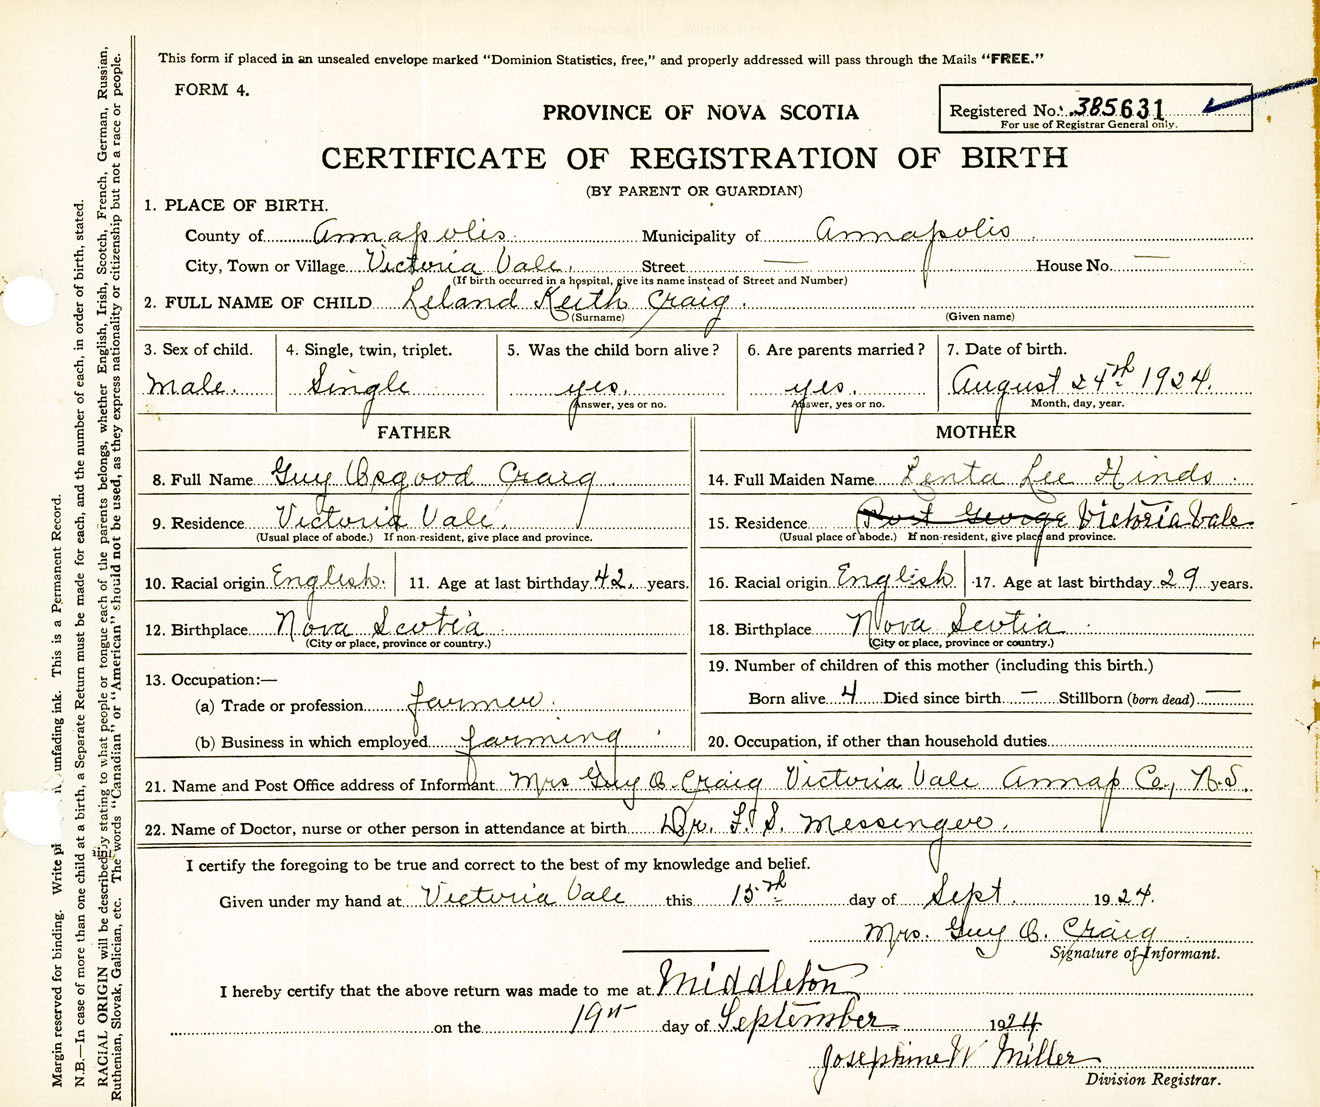 This form if placed in an unsealed envelope marked "Dominion Statistics, free," and properly addressed will pass through the Mails "FREE."
FORM 4.
PROVINCE OF NOVA SCOTIA
Registered No. 385631
For use of Registrar General only.
CERTIFICATE OF REGISTRATION OF BIRTH
(BY PARENT OR GUARDIAN)
1. PLACE OF BIRTH.
County of Annapolis Municipality of Annapolis
City, Town or Village Victoria Vale. Street — House No. —
(If birth occurred in a hospital, give its name instead of Street and Number)
2. FULL NAME OF CHILD Leland Keith Craig.
(Surname) (Given name)
3. Sex of child. 4. Single, twin, triplet. 5. Was the child born alive? 6. Are parents married? 7. Date of birth.
Male. Single yes. yes. August 24th 1924.
Answer, yes or no. Answer, yes or no. Month, day, year.
FATHER MOTHER
8. Full Name Guy Osgood Craig 14. Full Maiden Name Lenta Lee Hinds
9. Residence Victoria Vale. 15. Residence Port George Victoria Vale
(Usual place of abode.) If non-resident, give place and province. (Usual place of abode.) If non-resident, give place and province.
10. Racial origin English. 11. Age at last birthday 42. years. 16. Racial origin English 17. Age at last birthday 29 years.
12. Birthplace Nova Scotia 18. Birthplace Nova Scotia
(City or place, province or country.) (City or place, province or country.)
13. Occupation:— 19. Number of children of this mother (including this birth.)
(a) Trade or profession farmer. Born alive 4 Died since birth — Stillborn (born dead) —
(b) Business in which employed farming 20. Occupation, if other than household duties
21. Name and Post Office address of Informant Mrs Guy O. Craig Victoria Vale Annap Co., N.S.
22. Name of Doctor, nurse or other person in attendance at birth Dr. F. S. Messenger.
I certify the foregoing to be true and correct to the best of my knowledge and belief.
Given under my hand at Victoria Vale this 15th day of Sept. 1924.
Mrs. Guy O. Craig
Signature of Informant.
I hereby certify that the above return was made to me at Middleton
on the 19th day of September 1924
Josephine W Miller
Division Registrar.
Margin reserved for binding. Write unfading ink. This is a Permanent Record.
N.B.—In case of more than one child at a birth, a Separate Return must be made for each, and the number of each, in order of birth, stated.
RACIAL ORIGIN will be described by stating to what people or tongue each of the parents belongs, whether English, Irish, Scotch, French, German, Russian,
Ruthenian, Slovak, Galician, etc. The words "Canadian" or "American" should not be used, as they express nationality or citizenship but not a race or people.